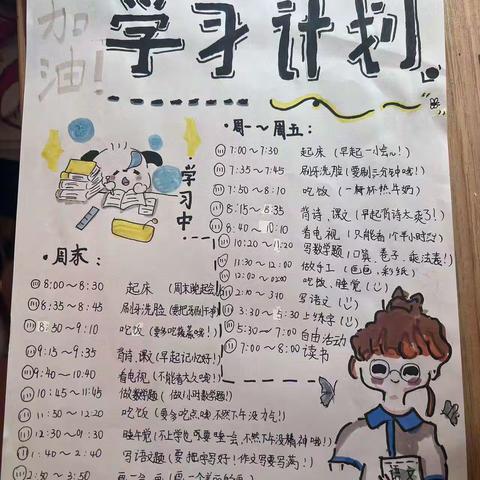 加油!
学习计划
学习中
周一~周五:
7:00~7:30 起床 (早起一小会儿!)
7:35~7:45 刷牙洗脸 (要刷三分钟哦!)
7:50~8:10 吃饭 (一杯热牛奶)
8:15~8:35 背诗、课文 (早起背诗太爽了!)
8:40~10:10 看电视 (只能看1个半小时)
10:20~11:20 写数学题 (口算、卷子、乘法表!)
11:30~12:00 做手工 (画画、彩纸)
12:00~02:00 吃饭、睡觉
2:10~3:10 写语文
3:30~5:30 上练字
5:30~7:00 自由活动
7:00~8:00 读书
周末:
8:00~8:30 起床 (周末晚起会
8:35~8:45 刷牙洗脸
8:50~9:10 吃饭
9:15~9:35 背诗、课文 (早起记忆好!)
9:40~10:40 看电视 (不能看太久哦!)
10:45~11:45 做数学题 (做1小时数学题!)
11:50~12:20 吃饭 (要多吃点哦不然下午没力气!)
12:30~01:30 睡午觉 (不上学也要睡一会,不然下午没精神哦!)
1:40~2:40 写语文题 (要把字写好!作文写要写满!)
2:50~3:50 画一会画
语文